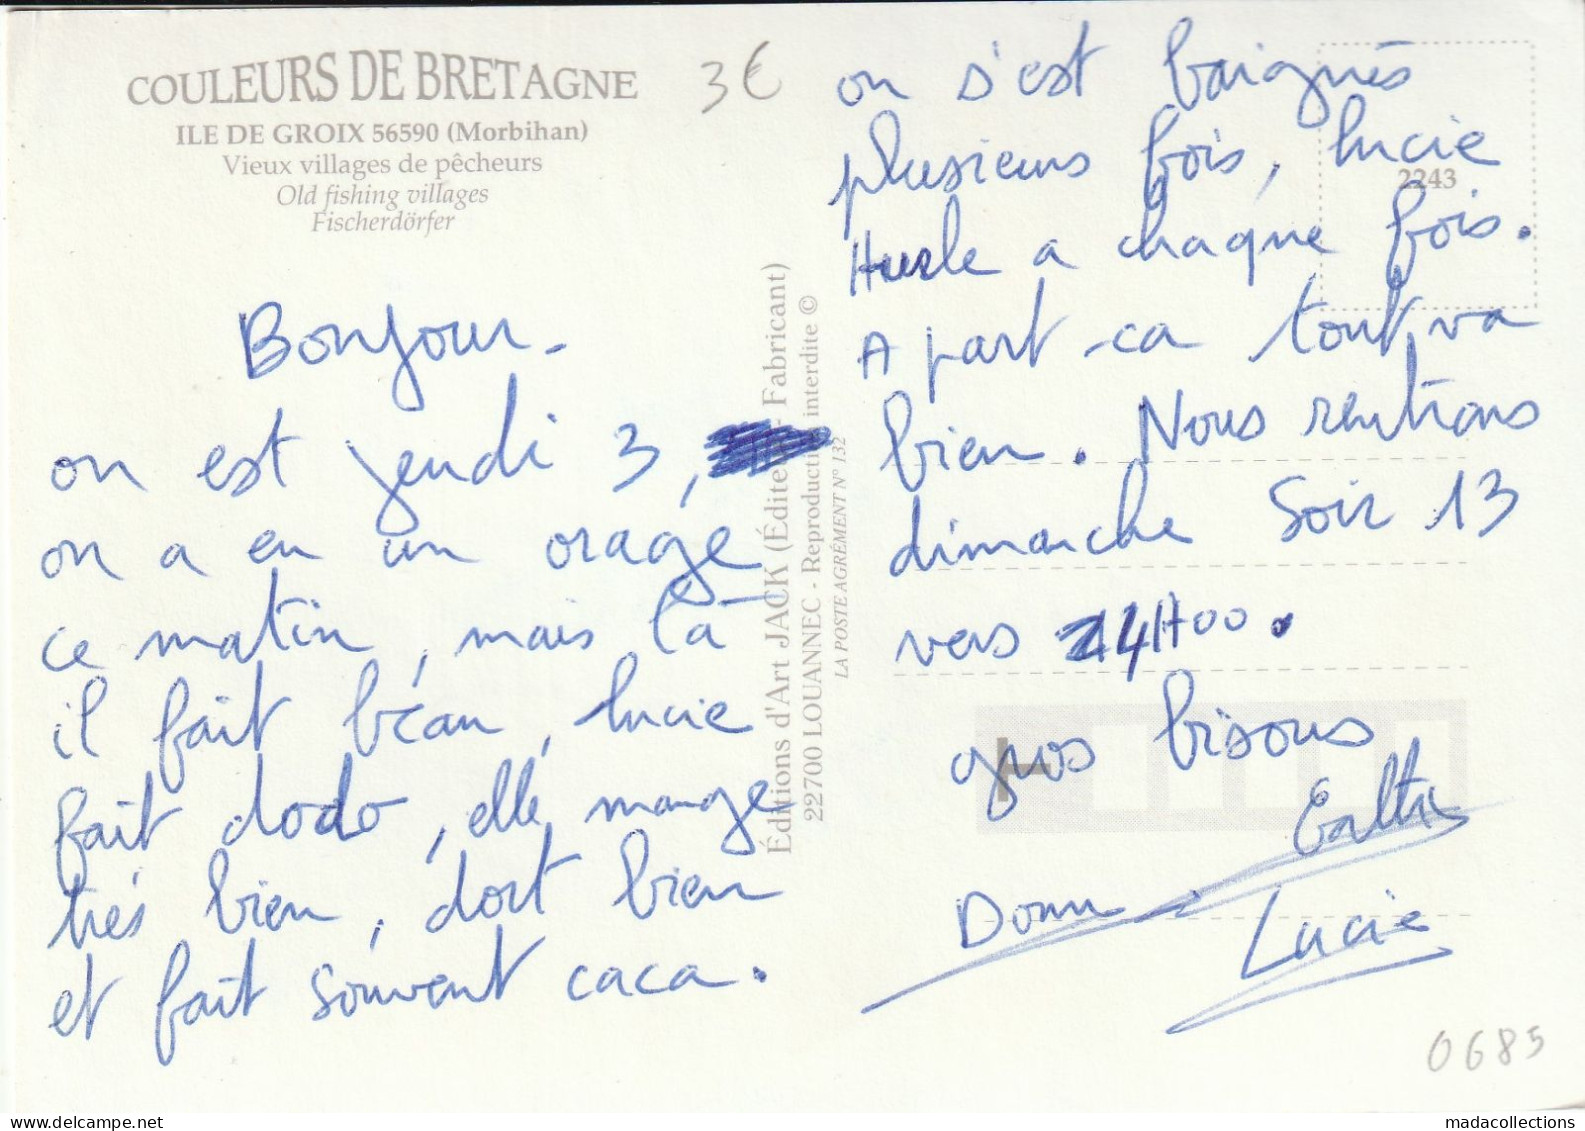 COULEURS DE BRETAGNE
ILE DE GROIX 56590 (Morbihan)
Vieux villages de pêcheurs
Old fishing villages
Fischerdörfer
3€
Bonjour -
on est jeudi 3,
on a eu un orage
ce matin, mais là
il fait béau, lucie
fait dodo, elle mange
trés bien, dort bien
et fait souvent caca.
Éditions d'Art JACK (Éditeur - Fabricant)
22700 LOUANNEC - Reproduction interdite ©
LA POSTE AGRÉMENT N° 132
2243
on s'est baignés
plusieurs fois, lucie
Hurle a chaque fois.
A part ca tout va
bien. Nous rentrons
dimanche soir 13
vers 14H00.
gros bisous
Domi
Lucie
0685
madacollections